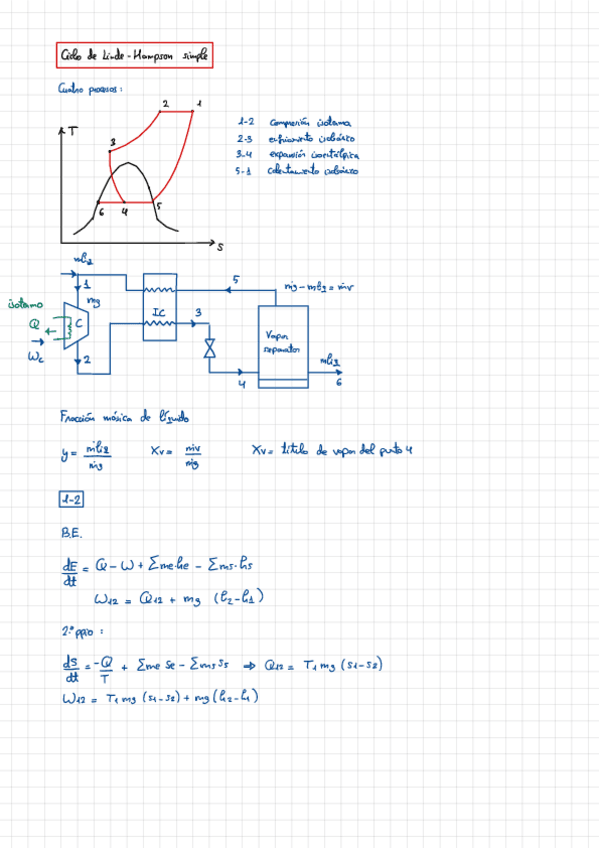 Ciclo de Linde-Hampson simple
Cuatro procesos:
1-2 Compresión isoterma
2-3 enfriamiento isobárico
3-4 expansión isoentálpica
5-1 calentamiento isobárico
T
2 1
3
6 4 5
s
ṁliq
1
ṁg
isotermo
Q
C
Wc
2
IC
3
5
ṁg - ṁliq = ṁv
Vapor
separator
4
ṁliq
6
Fracción másica de líquido
y = ṁliq / ṁg Xv = ṁv / ṁg Xv = título de vapor del punto 4
1-2
B.E.
dE/dt = Q - W + Σme·he - Σms·hs
W12 = Q12 + mg (h2-h1)
2º ppio:
ds/dt = -Q/T + Σme Se - Σms Ss ⇒ Q12 = T1 mg (s1-s2)
W12 = T1 mg (s1-s2) + mg (h2-h1)